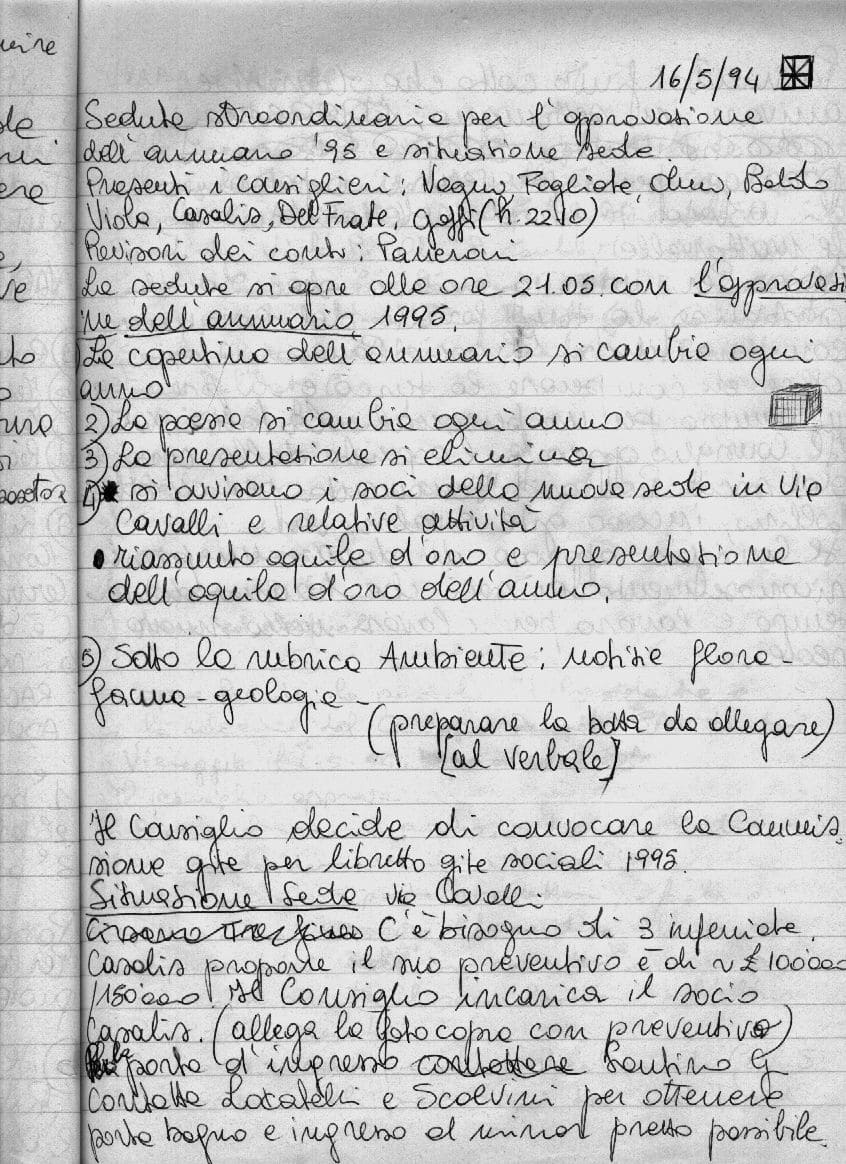 16/5/94
Seduta straordinaria per l'approvazione
dell'annuario '95 e situazione sede.
Presenti i consiglieri: Fogliata, Boldo
Viola, Casalis, Del Frate, Goffi (h. 22.10)
Revisori dei conti: Panceroni
La seduta si apre alle ore 21.05. con l'approvazi
ne dell'annuario 1995.
1) La copertina dell'annuario si cambia ogni
anno
2) La poesia si cambia ogni anno
3) La presentazione si elimina
4) si avvisano i soci della nuova sede in Via
Cavalli e relative attività
• riassunto aquile d'oro e presentazione
dell'aquila d'oro dell'anno.
5) Sotto la rubrica Ambiente: notizie flora-
fauna-geologia-
(preparare la bozza da allegare)
[al verbale]
Il Consiglio decide di convocare la Commis
sione gite per libretto gite sociali 1995.
Situazione Sede via Cavalli
C'è bisogno di 3 inferriate.
Casalis propone il suo preventivo è di ~ £ 100'000
/150'000. Il Consiglio incarica il socio
Casalis. (allega la fotocopia con preventivo)
porta d'ingresso contattare
Contatta Locatelli e Scalvini per ottenere
porta bagno e ingresso al minor prezzo possibile.